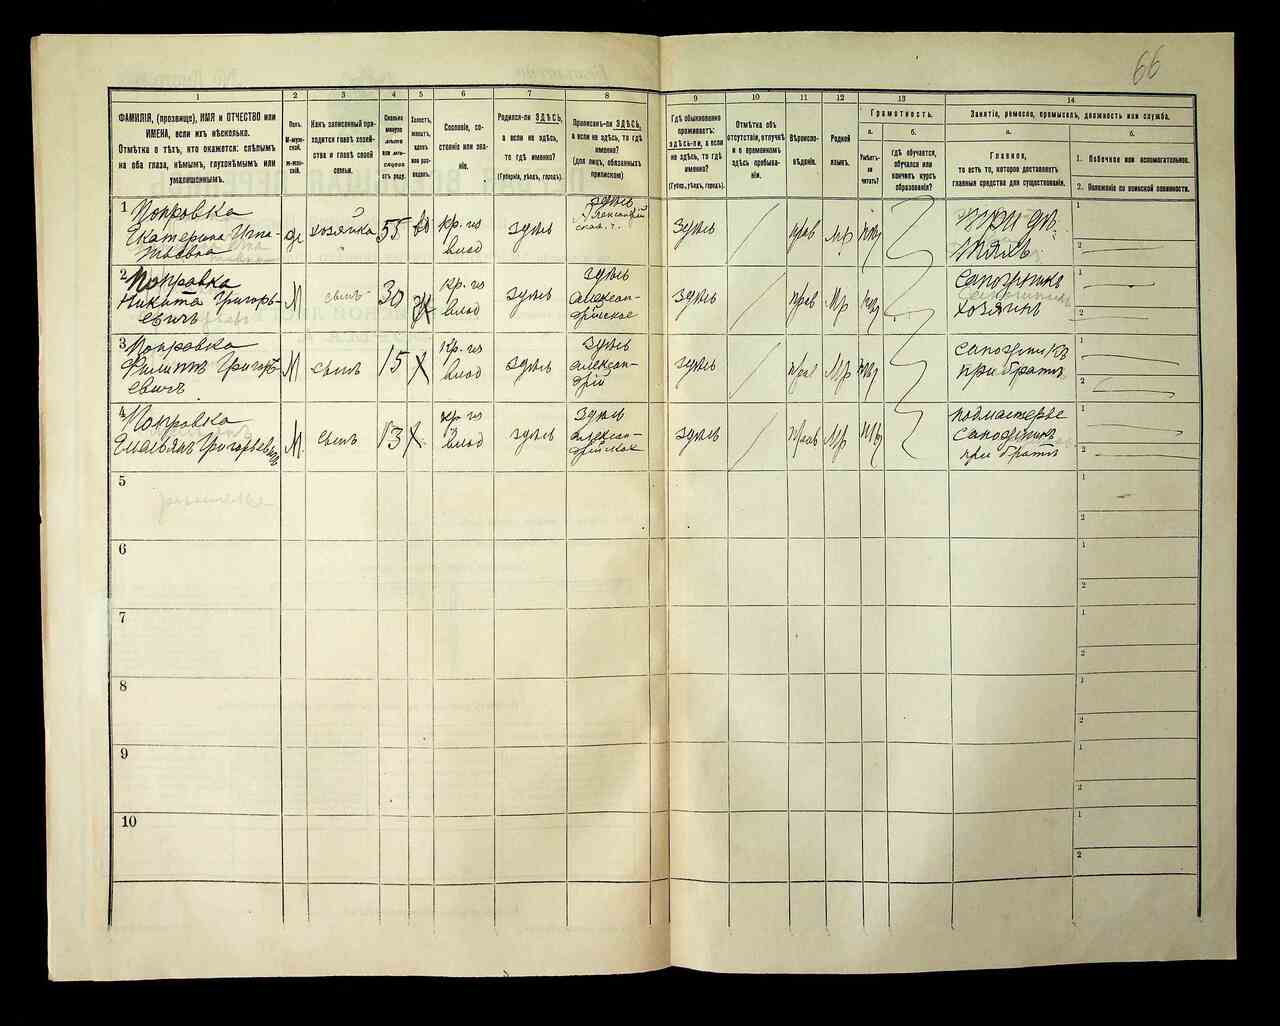 66
1
2
3
4
5
6
7
8
9
10
11
12
13
14
ФАМИЛІЯ, (прозвище), ИМЯ и ОТЧЕСТВО или
ИМЕНА, если ихъ нѣсколько.
Отмѣтка о тѣхъ, кто окажется: слѣпымъ
на оба глаза, нѣмымъ, глухонѣмымъ или
умалишеннымъ.
Полъ.
М-мужской.
Ж-женскій.
Какъ записанный приходится
главѣ хозяйства и главѣ своей
семьи.
Сколько
минуло
лѣтъ
или мѣсяцевъ
отъ роду.
Холостъ,
женатъ,
вдовъ
или разведенъ.
Сословіе, состояніе
или званіе.
Родился-ли ЗДѢСЬ,
а если не здѣсь,
то гдѣ именно?
(Губернія, уѣздъ, городъ).
Приписанъ-ли ЗДѢСЬ,
а если не здѣсь, то гдѣ
именно?
(для лицъ, обязанныхъ
припискою)
Гдѣ обыкновенно
проживаетъ:
здѣсь-ли, а если
не здѣсь, то гдѣ
именно?
(Губер., уѣздъ, городъ).
Отмѣтка объ
отсутствіи, отлучкѣ
и о временномъ
здѣсь пребываніи.
Вѣроисповѣданіе.
Родной
языкъ.
Грамотность.
а.
б.
Умѣетъ-ли
читать?
гдѣ обучается,
обучался или
кончилъ курсъ
образованія?
Занятіе, ремесло, промыселъ, должность или служба.
а.
б.
Главное,
то есть то, которое доставляетъ
главныя средства для существованія.
1. Побочное или вспомогательное.
2. Положеніе по воинской повинности.
1
Попровка
Екатерина Игнатьевна
хозяйка
55
кр. из
влад
здѣсь
здѣсь
здѣсь
прав
Мр
при дѣтяхъ
1
2
2
Попровка
Никита Григорьевичъ
М
сынъ
30
кр. из
влад
здѣсь
здѣсь
Александрійское
здѣсь
прав
Мр
сапожникъ
хозяинъ
1
2
3
Попровка
Филиппъ Григорьевичъ
М
сынъ
15
Х
кр. из
влад
здѣсь
здѣсь
Александрій
здѣсь
прав
Мр
сапожникъ
при братѣ
1
2
4
Попровка
Емельянъ Григорьевичъ
М
сынъ
13
Х
кр. из
влад
здѣсь
здѣсь
Александрійское
здѣсь
прав
Мр
подмастерье
сапожник
при братѣ
1
2
5
1
2
6
1
2
7
1
2
8
1
2
9
1
2
10
1
2